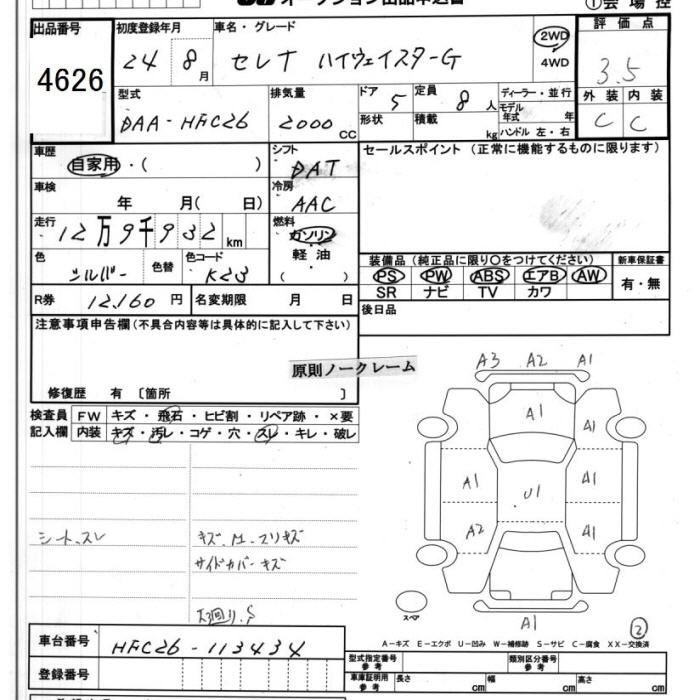 オークション出品申込書
①会場控
出品番号 初度登録年月 車名・グレード 評価点
4626 24 8月 セレナ ハイウェイスターG 2WD 4WD 3.5
型式 排気量 ドア 定員 ディーラー・並行 外装 内装
DAA-HFC26 2000cc 5 8人 モデル年式 年 C C
形状 積載 kg ハンドル 左・右
車歴 シフト セールスポイント (正常に機能するものに限ります)
自家用・( ) DAT
車検 冷房
年 月( 日) AAC
走行 燃料
12万9千932km ガソリン
色 色替 色コード 軽油 装備品 (純正品に限り○をつけてください) 新車保証書
シルバー K23 ( ) PS PW ABS エアB AW 有・無
SR ナビ TV カワ
R券 12,160円 名変期限 月 日 後日品
注意事項申告欄(不具合内容等は具体的に記入して下さい)
原則ノークレーム
修復歴 有〔箇所 〕
検査員 FW キズ・飛石・ヒビ割・リペア跡・×要
記入欄 内装 キズ・汚レ・コゲ・穴・スレ・キレ・破レ
A3 A2 A1
A1 A1
A1 U1 A1
A2 A1
A1
シートスレ キズ.M.スリキズ
サイドカバーキズ
下廻りS
スペア
②
A-キズ E-エクボ U-凹み W-補修跡 S-サビ C-腐食 XX-交換済
車台番号 HFC26-113434
型式指定番号 参考 類別区分番号 参考
登録番号 車庫証明用 参考 長さ cm 幅 cm 高さ cm